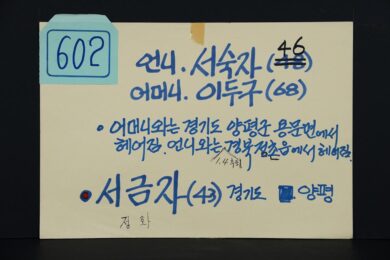 602
46
언니. 서숙자 (48)
어머니. 이두구 (68)
• 어머니와는 경기도 양평군 용문면에서
헤어짐. 언니와는 경북 점촌읍에서 헤어짐.
1.4후퇴
• 서금자 (43) 경기도 양평